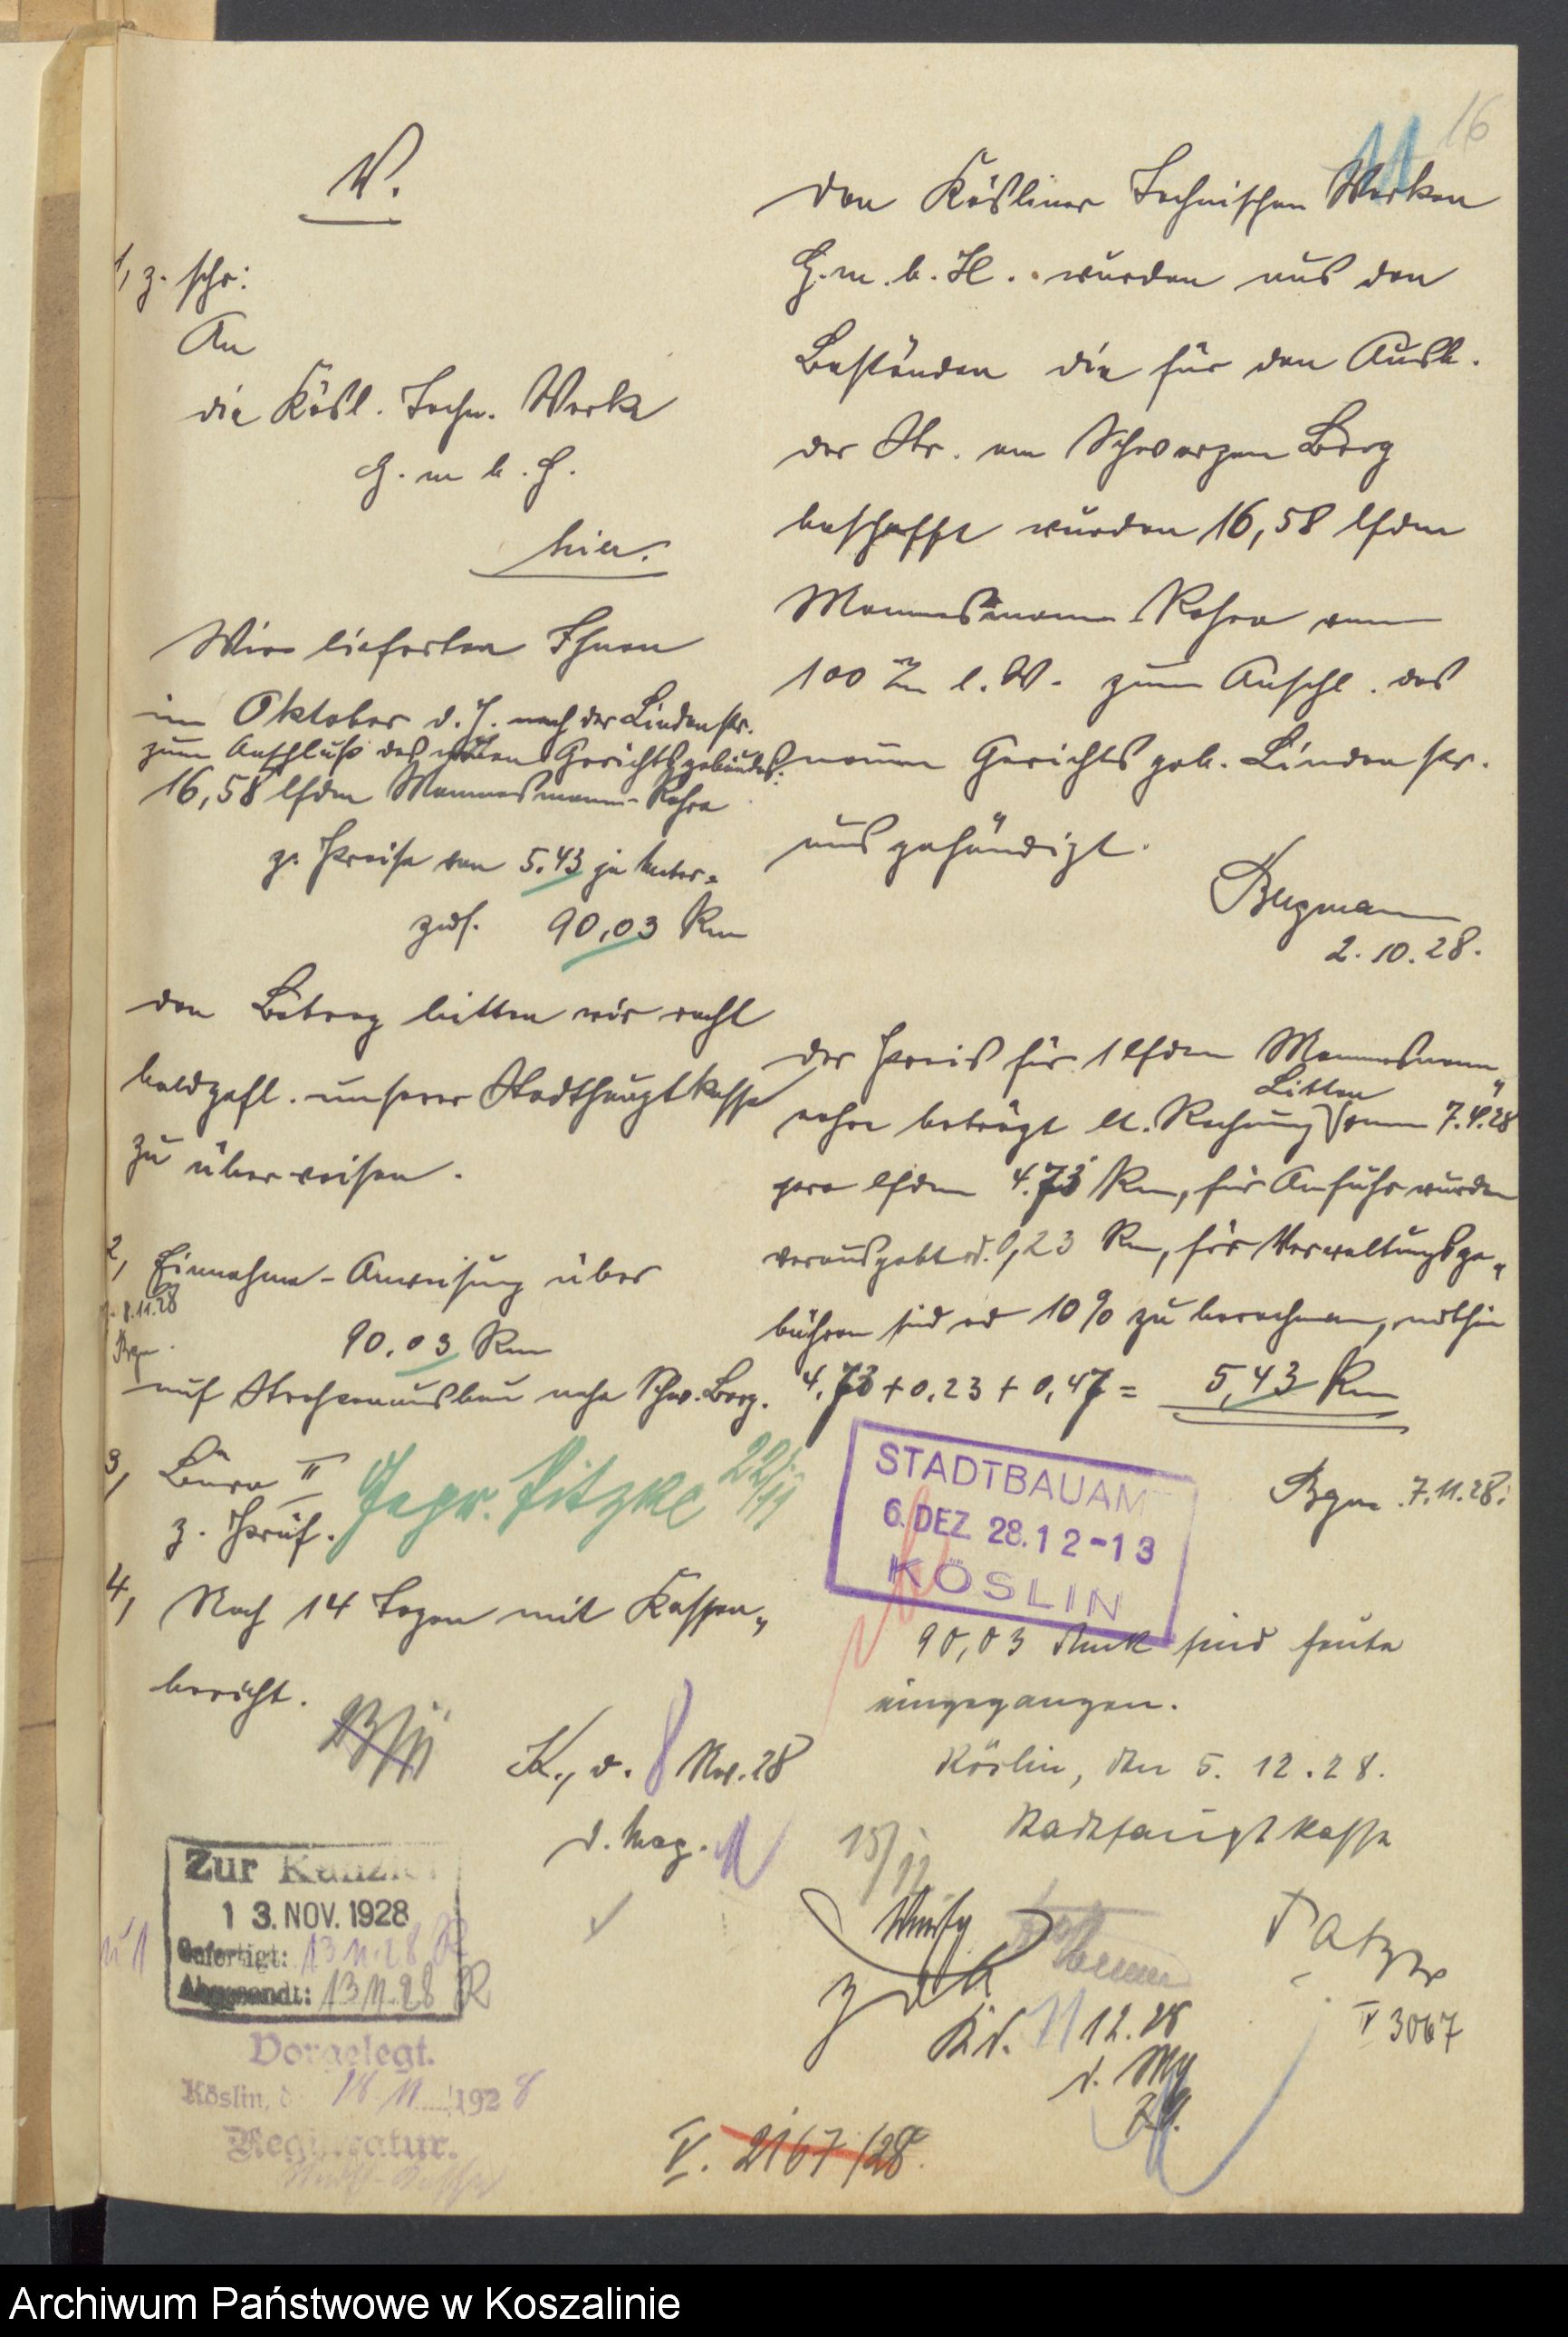 16
11
Den Kösliner Technischen Werken
G.m.b.H. wurden aus den
Beständen die für den Ausb.
der Str. am Schwarzen Berg
beschafft wurden 16,58 lfdm
Mannesmann-Rohre von
100 m/m l.W. zum Anschl. des
neuen Gerichtsgeb. Lindenstr.
ausgehändigt.
Bergmann
2.10.28.
Der Preis für 1 lfdm Mannesmann„
rohre beträgt lt. Rechnung Litten vom 7.4.28
pro lfdm 4.73 Rm, für Anfuhr wurden
verausgabt rd. 0,23 Rm, für Verwaltungsge„
bühren sind rd 10% zu berechnen, mithin
4,73 + 0,23 + 0,47 = 5,43 Rm
Bgm. 7.11.28.
STADTBAUAM
6. DEZ. 28. 12-13
KÖSLIN
90,03 Rmk sind heute
eingegangen.
Köslin, den 5. 12. 28.
Stadthauptkasse
15/12
V 3067
z d A
K. d. 11 12. 28
d. Mg
V.
1, z. schr:
An
die Kösl. Techn. Werke
G.m.b.H.
hier.
Wir lieferten Ihnen
im Oktober d.J. nach der Lindenstr.
zum Anschluß des neuen Gerichtsgebäudes
16,58 lfdm Mannesmann-Rohre
z. Preise von 5.43 je Meter =
zus. 90,03 Rm
Den Betrag bitten wir recht
bald gefl. unserer Stadthauptkasse
zu überweisen.
2, Einnahme-Anweisung über
8.11.28
90.03 Rm
Bgm.
auf Straßenausbau nahe Schw. Berg.
3, Büro II
z. Prüf.
Gepr. Pitzke 22/11
4, Nach 14 Tagen mit Kassen„
bericht.
K., d. 8 Nov. 28
d. Mag.
Zur Kanzlei
13. NOV. 1928
Gefertigt: 13.11.28 R
Abgesandt: 13.11.28 R
Vorgelegt.
Köslin, d 18 11 1928
Registratur.
V. 2167/28.
Archiwum Państwowe w Koszalinie